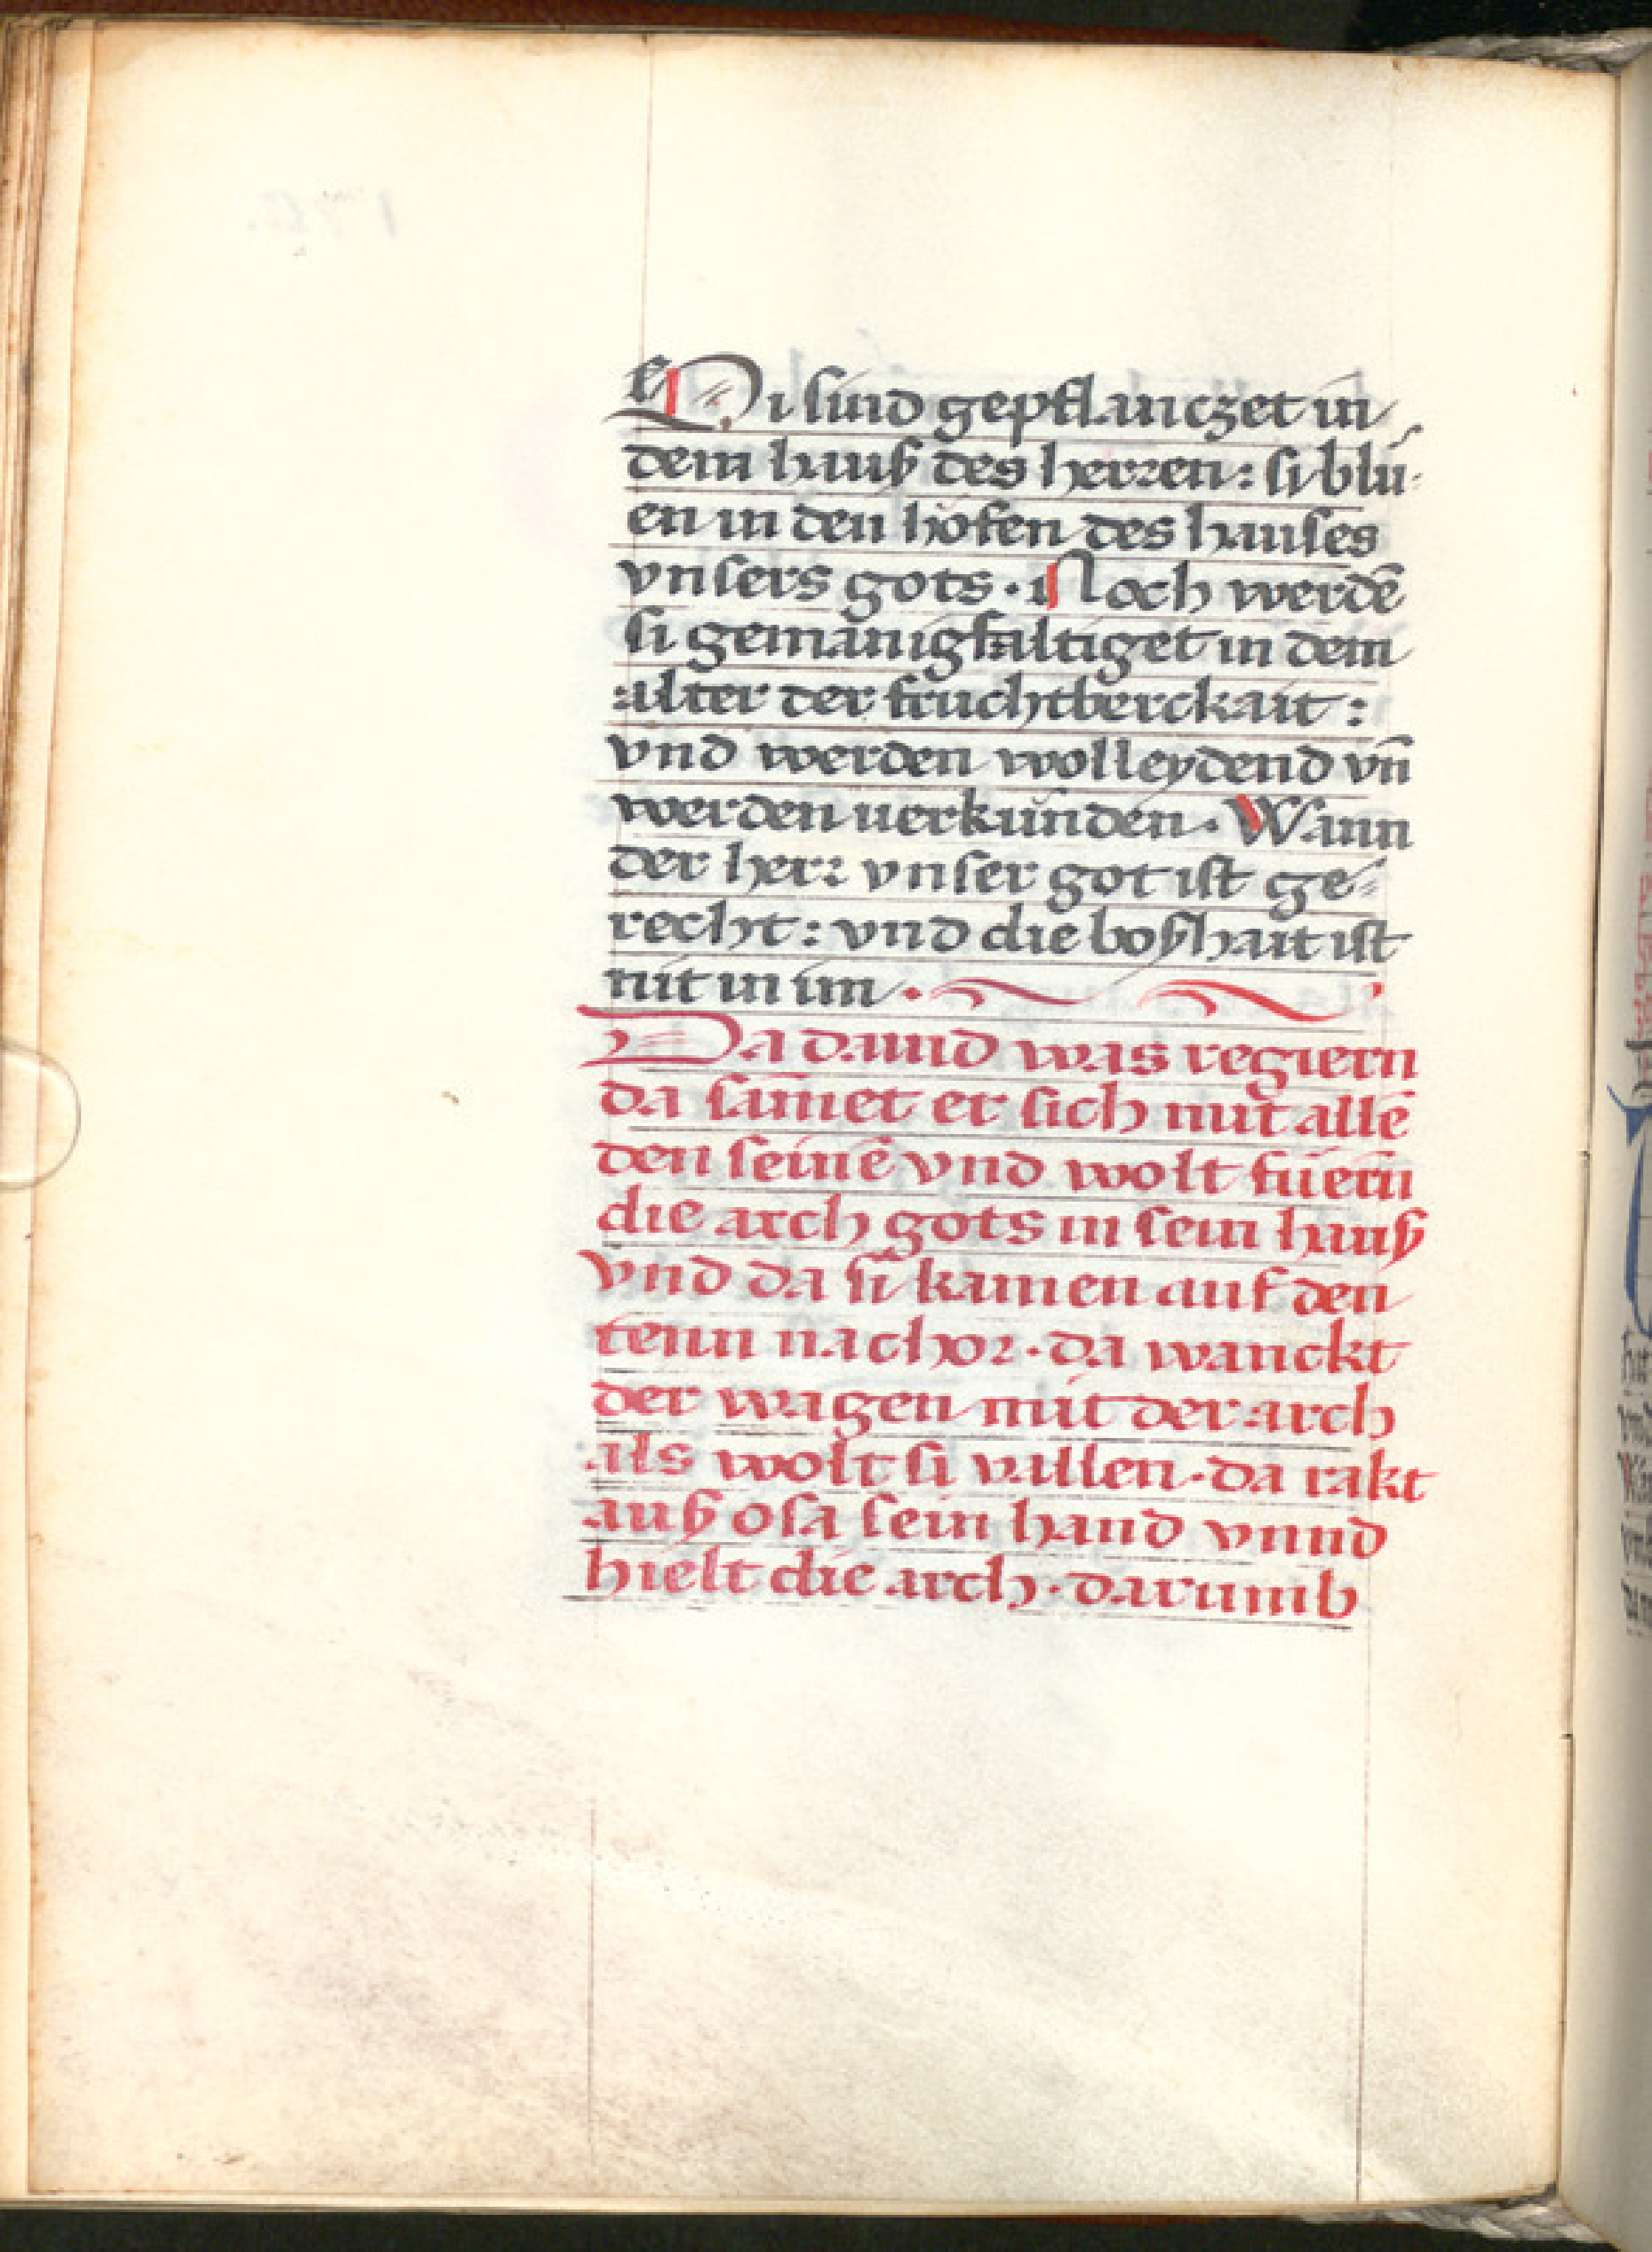 Di sind gepflanczet in
dem hauß des herren: si blü-
en in den höfen des hauses
vnsers gots. Noch werdē
si gemanigfaltiget in dem
alter der fruchtberckait:
vnd werden wolleydend vn̄
werden uerkünden. Wann
der herr vnser got ist ge-
recht: vnd die boßhait ist
nit in im.
Da dauid was regiern
da sam̄et er sich mit allē
den seinē vnd wolt füern
die arch gots in sein hauß
Vnd da si kamen auf den
tenn nachor. da wanckt
der wagen mit der arch
als wolt si vallen. da rakt
auß osa sein hand vnnd
hielt die arch. darumb